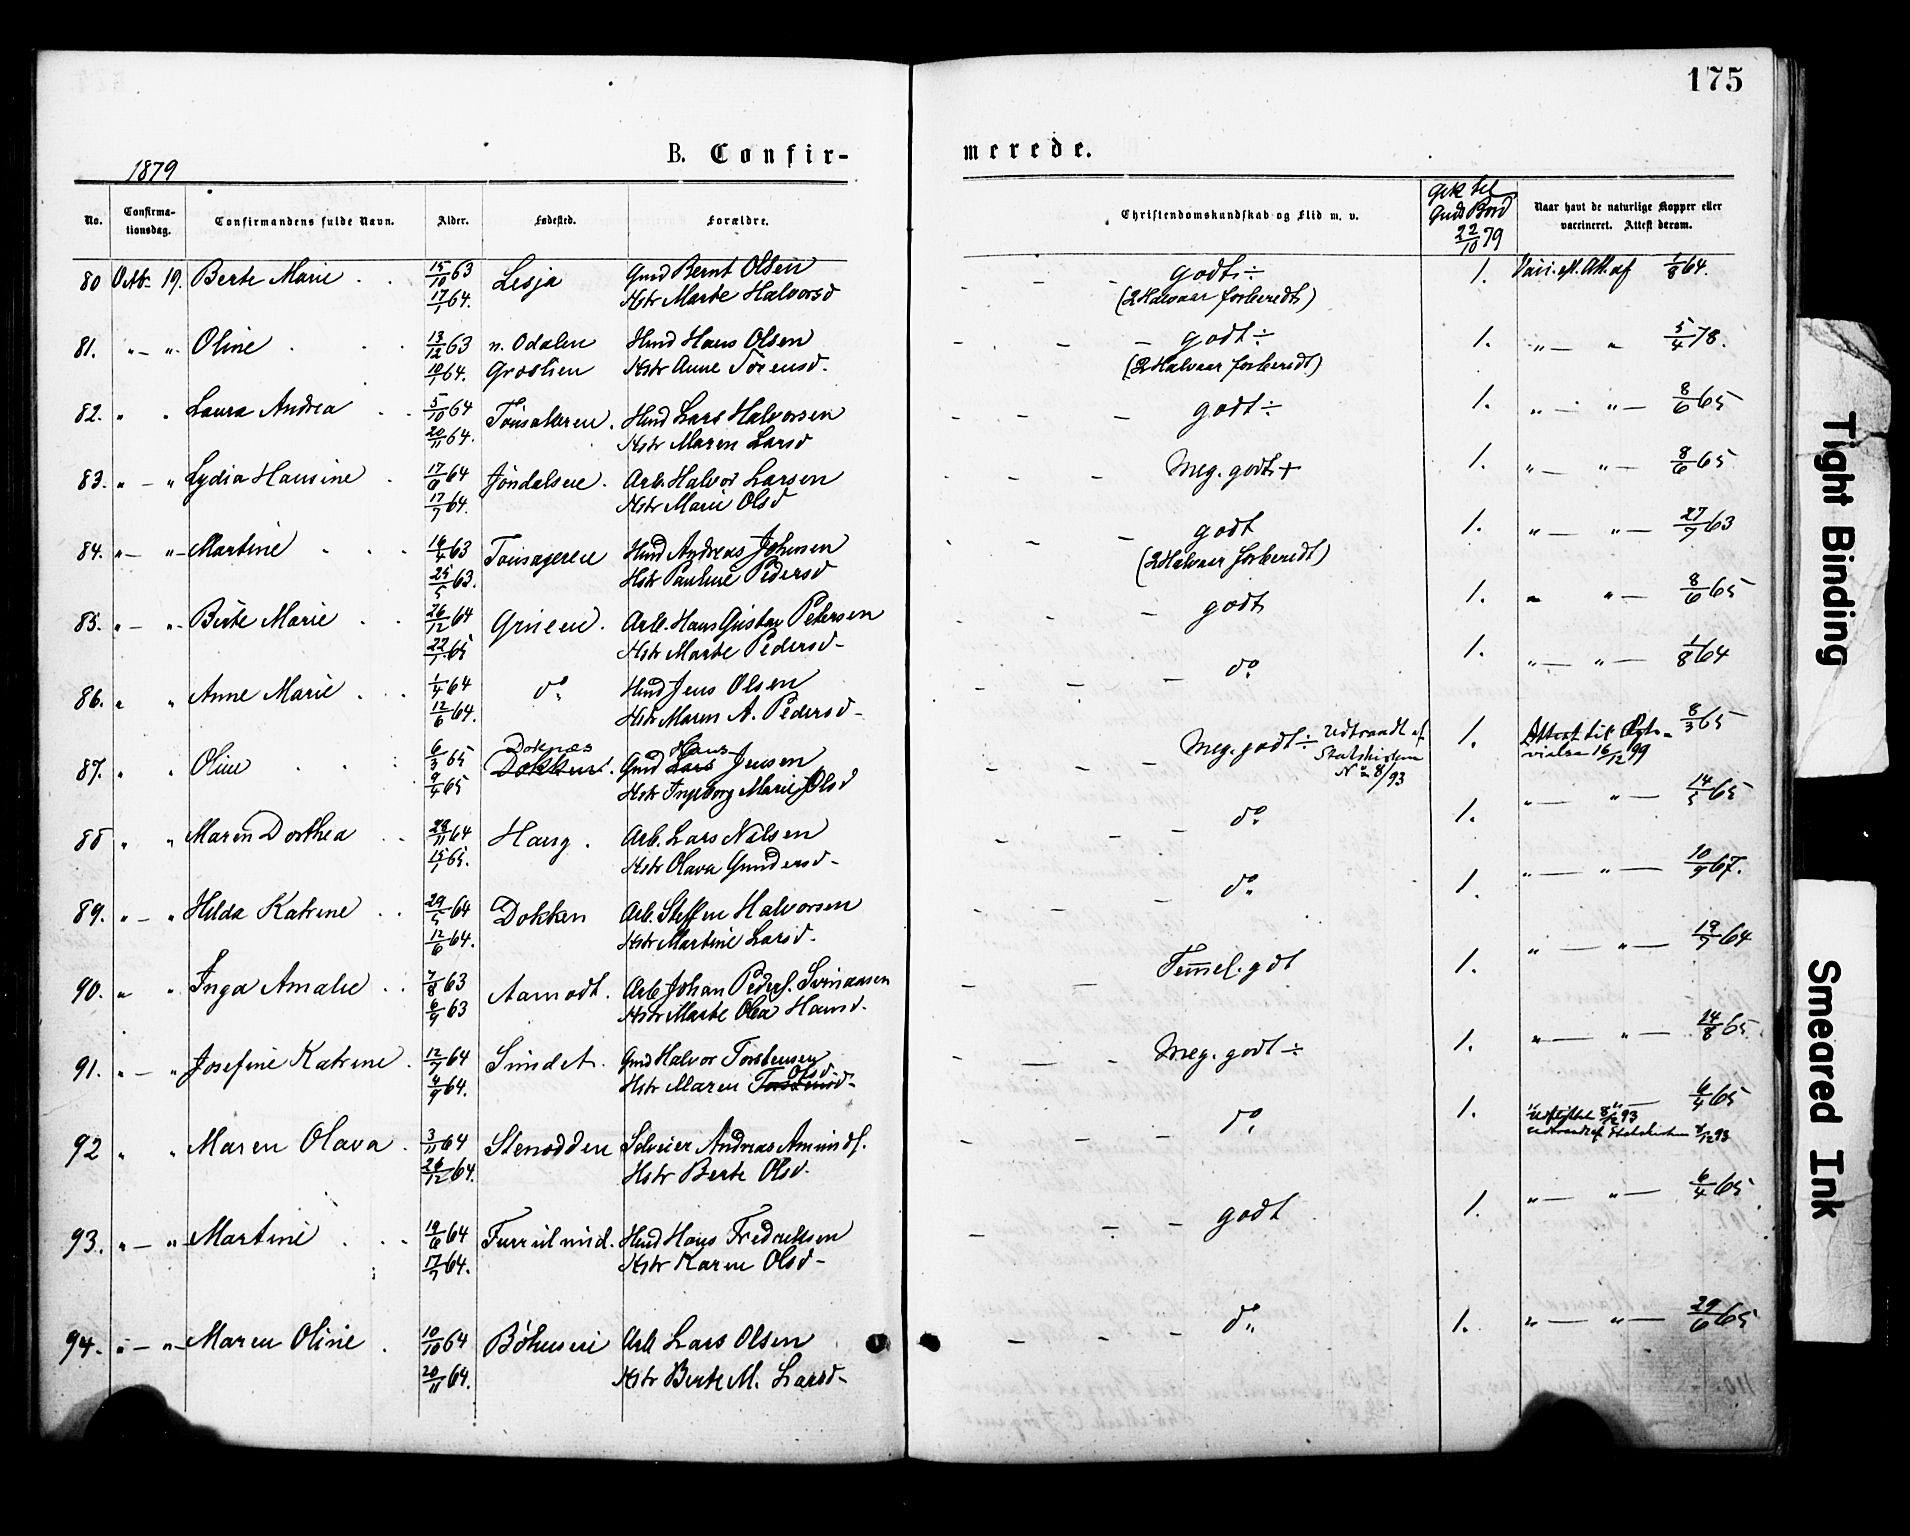 175
B. Confir-
merede.
1879
No.
Confirma-
tionsdag.
Confirmandens fulde Navn.
Alder.
Fødested.
Forældre.
Christendomskundskab og Flid m. v.
Gik til
Guds Bord
22/10 79
Naar havt de naturlige Kopper eller
vaccineret. Attest derom.
80 Octb. 19. Berte Marie 15/10 63 Lesja Gmd Bernt Olsen godt ÷ 1. Vacc. efl. Att. af 1/8 64.
17/1 64. Hstr Marte Halvorsd (2 Halvaar forberedt)
81. " — " Oline 13/12 63 n. Odalen Hmd Hans Olsen godt ÷ 1. " — " 5/4 78.
10/1 64. Hstr Anne (2 Halvaar forberedt)
82. " " Laura Andrea 5/10 64 Hmd Lars Halvorsen godt ÷ 1. " — " — 8/6 65
20/11 64. Hstr Maren Larsd
83. " — " Lydia Hansine 17/6 64 Arb. Halvor Larsen Meg. godt + 1. " — " — 8/6 65
17/7 64. Hstr Marie Olsd
84. " — " — Martine 16/4 63 Hmd Andreas Johnsen godt 1. " — " — 27/7 63
25/5 63. Hstr Pauline Pedersd (2 Halvaar forberedt)
85. " — " Berte Marie 26/12 64 Gruen. Arb. Hans Gustav Petersen godt 1. " " — 8/6 65
22/1 65 Hstr Marte Pedersd —
86. " " Anne Marie 1/4 64 do Hmd Jens Olsen do 1. " — " — 1/8 64
12/6 64. Hstr Maren A. Pedersd —
87. " " Oline 6/3 65 Doknæs Dokken. Gmd Hans Lars Jensen Meg. godt ÷ Udtraadt af 1. Attest til 8/3 65
9/4 65 Hstr Ingeborg Marie Olsd Statskirken 8/93 vielse 16/12 99
88 " " Maren Dorthea 28/11 64 Haug. Arb. Lars Nilsen do 1. " — " — 14/5 65
15/1 65. Hstr Olava Gundersd —
89. " — " Hilda Katrine 29/5 64 Dokken Arb. Steffen Halvorsen do 1. " — " — 10/9 67.
12/6 64. Hstr Martine Larsd.
90. " " Inga Amalie 7/8 63 Aamodt. Arb Johan Peders. Temmel. godt 1. " — " — 19/7 64
6/9 63 Hstr Marte Olea Hansd.
91. " — " Josefine Katrine. 12/7 64 Sundet. Gmd Halvor Torstensen Meg. godt ÷ 1. " — " — 14/8 65
4/9 64. Hstr Maren Olsd —
92 " " Maren Olava. 3/11 64 Stenodden Selveier Andreas Amunds. do 1. " — 6/4 65
26/12 64. Hstr Berte Olsd. Udtraadt af Statskirken
93. " — " — Martine 19/6 64 Hmd Hans Fredriksen godt 1. " — " — 6/4 65
17/7 64. Hstr Karen Olsd —
94. " — " — Maren Oline. 10/10 64 Arb Lars Olsen do 1. " — " — 29/6 65
20/11 64. Hstr Berte M. Larsd —
Tight Binding
Smeared Ink